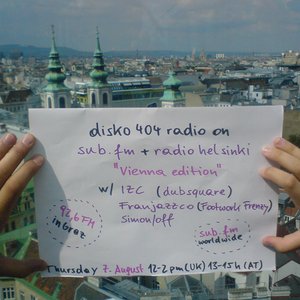 disko 404 radio on
sub.fm + radio helsinki
"Vienna edition"
w/ IZC (dubsquare)
Franjazzco (Footwork Frenzy)
Simon/off
92,6 FM
in Graz
sub.fm
worldwide
Thursday 7. August 12-2pm (UK) 13-15h (AT)